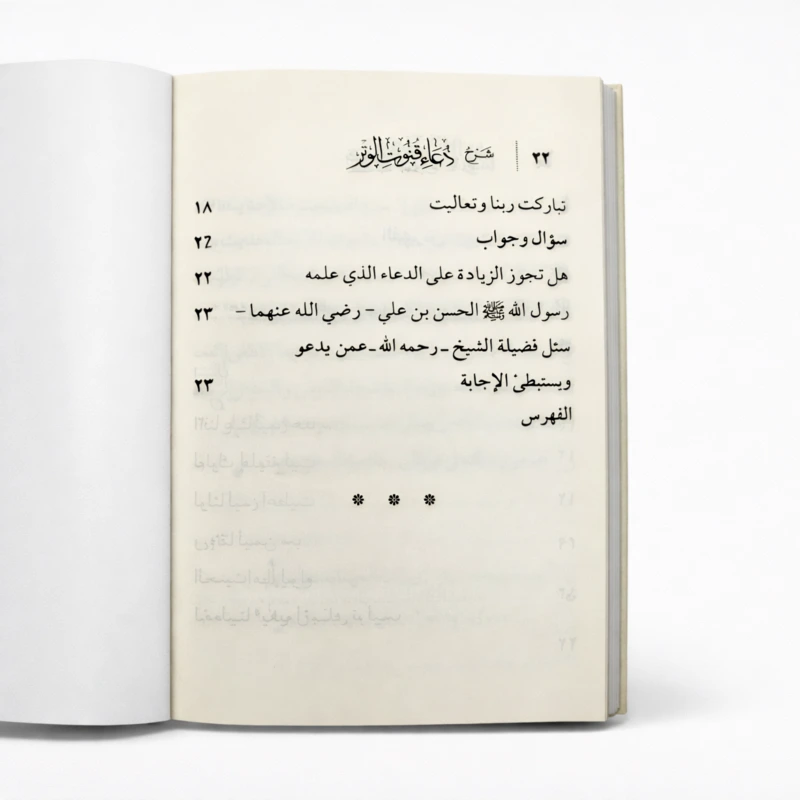 ٢٢ شرح دُعَاءِ قُنُوتِ الوِتْرِ
تباركت ربنا وتعاليت ١٨
سؤال وجواب
هل تجوز الزيادة على الدعاء الذي علمه ٢٢
رسول الله ﷺ الحسن بن علي – رضي الله عنهما – ٢٣
سئل فضيلة الشيخ ـ رحمه الله ـ عمن يدعو
ويستبطئ الإجابة ٢٣
الفهرس